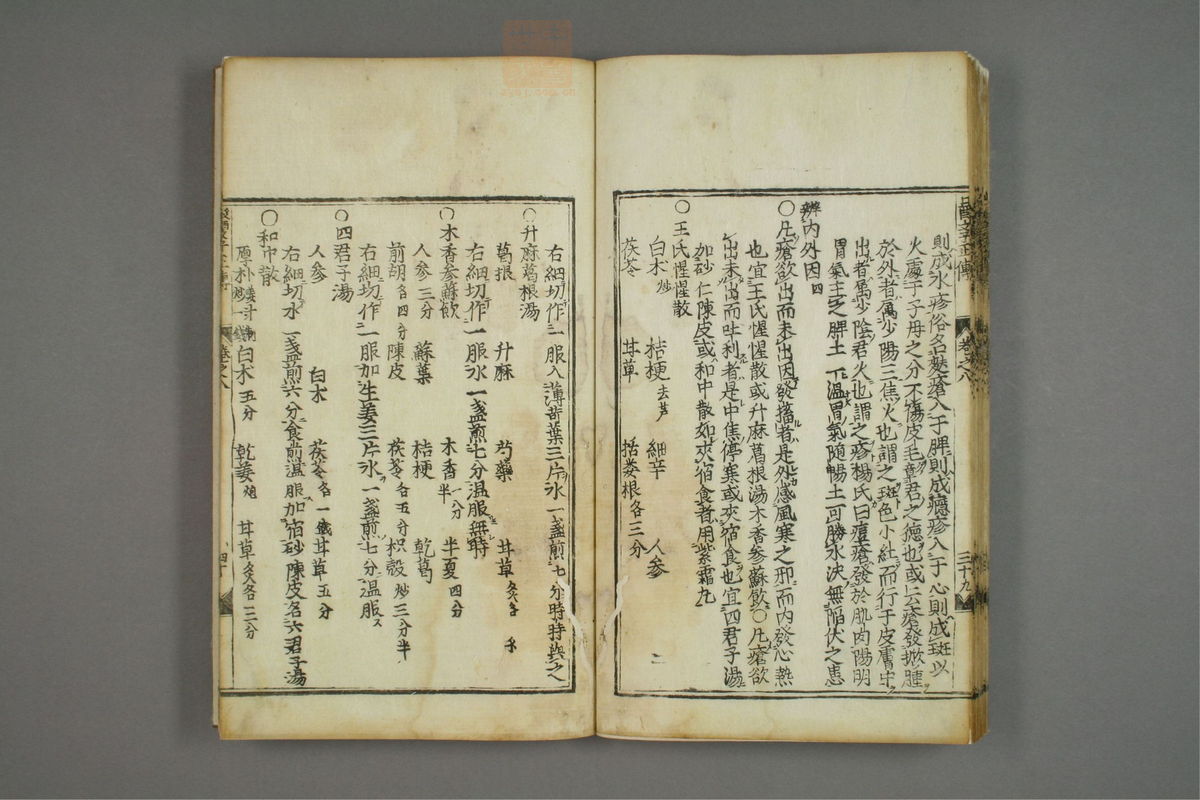 則成水疹俗名麩瘡入于脾則成癮疹入于心則成斑以
火處于子母之分不傷皮毛彰君之德也或云瘡發掀腫
於外者属少陽三焦火也謂之斑色小紅而行于皮膚中
出者属少陰君火也謂之疹楊氏曰痘瘡發於肌肉陽明
胃氣主之脾土一溫胃氣随暢土可勝水決無陷伏之患
辨内外因四
○凡瘡欲出而未出因發搐者是外感風寒之邪而内發心熱
也宜王氏惺惺散或升麻葛根湯木香参蘇飲○凡瘡欲
出未出而吐利者是中焦停寒或夾宿食也宜四君子湯
加砂仁陳皮或和中散如夾宿食者用紫霜丸
○王氏惺惺散
白朮炒 桔梗去芦 細辛 人参
茯苓 甘草 括蔞根各三分
右細切作一服入薄荷葉三片水一盞煎七分時時與之
○升麻葛根湯
葛根 升麻 芍藥 甘草炙各
右細切作一服水一盞煎七分温服無時
○木香参蘇飲
人参三分 蘇葉 桔梗 乾葛
前胡各四分 陳皮 茯苓各五分 枳殻炒三分半
木香一分半 半夏四分
右細切作一服加生姜三片水一盞煎七分温服
○四君子湯
人参 白朮 茯苓各一錢 甘草五分
右細切水一盞煎六分食前温服加宿砂陳皮名六君子湯
○和中散
厚朴姜汁制炒一錢 白朮五分 乾姜炮 甘草炙各三分
卷之八
三十九
卷之八
四十